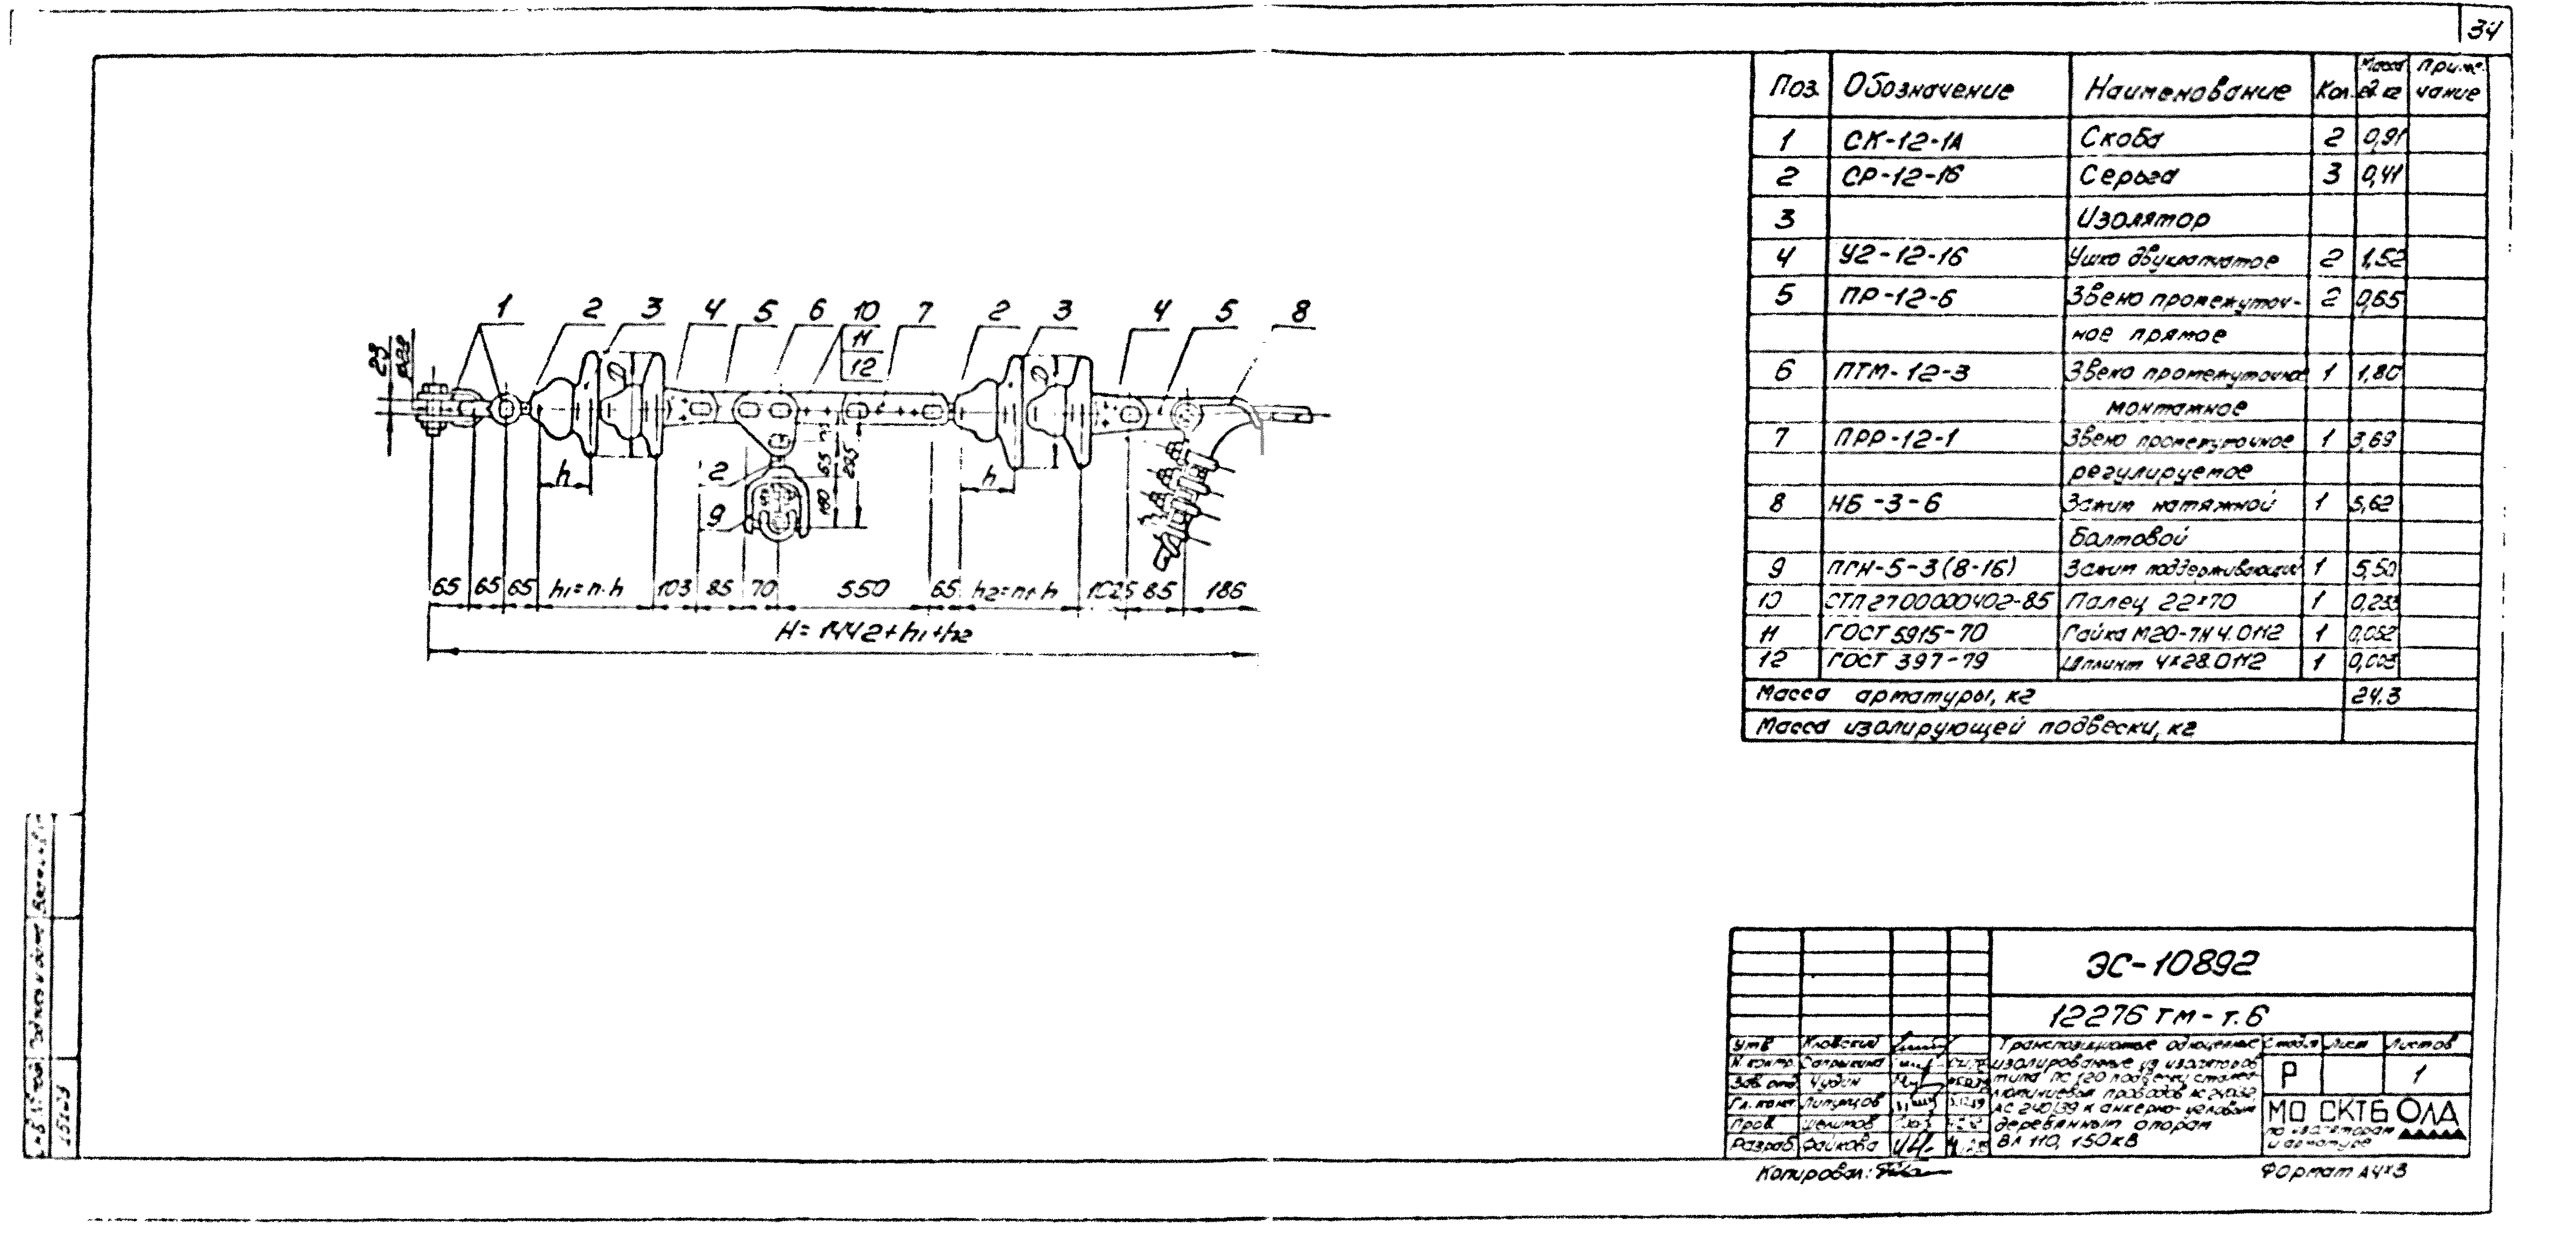 34
Поз. Обозначение Наименование Кол. Масса ед. кг Приме-чание
1 СК-12-1А Скоба 2 0,91
2 СР-12-16 Серьга 3 0,41
3 Изолятор
4 У2-12-16 Ушко двухлапчатое 2 1,52
5 ПР-12-6 Звено промежуточ- 2 0,65
ное прямое
6 ПТМ-12-3 Звено промежуточное 1 1,80
монтажное
7 ПРР-12-1 Звено промежуточное 1 3,69
регулируемое
8 НБ-3-6 Зажим натяжной 1 5,62
болтовой
9 ПГН-5-3(8-16) Зажим поддерживающий 1 5,50
10 СТП 2700000402-85 Палец 22×70 1 0,233
11 ГОСТ 5915-70 Гайка М20-7Н 4.0112 1 0,062
12 ГОСТ 397-79 Шплинт 4×28.0112 1 0,003
Масса арматуры, кг 24.3
Масса изолирующей подвески, кг
1 2 3 4 5 6 10 7 2 3 4 5 8
11
12
23
D D
h h
2
9
65
100
65 65 65 h1=n·h 103 85 70 550 65 h2=n1·h 102,5 85 186
H=1442+h1+h2
ЭС-10892
12276тм-т.6
Утв Кловский
Н. контр. Сапрыкина
Зав. отд. Чудин
Гл. конст Липунцов
Пров. Шелипов
Разраб. Файкова
Транспозиционные одноцепные
изолированные из изоляторов
типа ПС 120 подвески стале-
алюминиевых проводов АС 240/32,
АС 240/39 к анкерно-угловым
деревянным опорам
ВЛ 110, 150кВ
Стадия Лист Листов
Р 1
МО СКТБ ОЛА
по изоляторам
и арматуре
Копировал:
Формат А4×3
15123